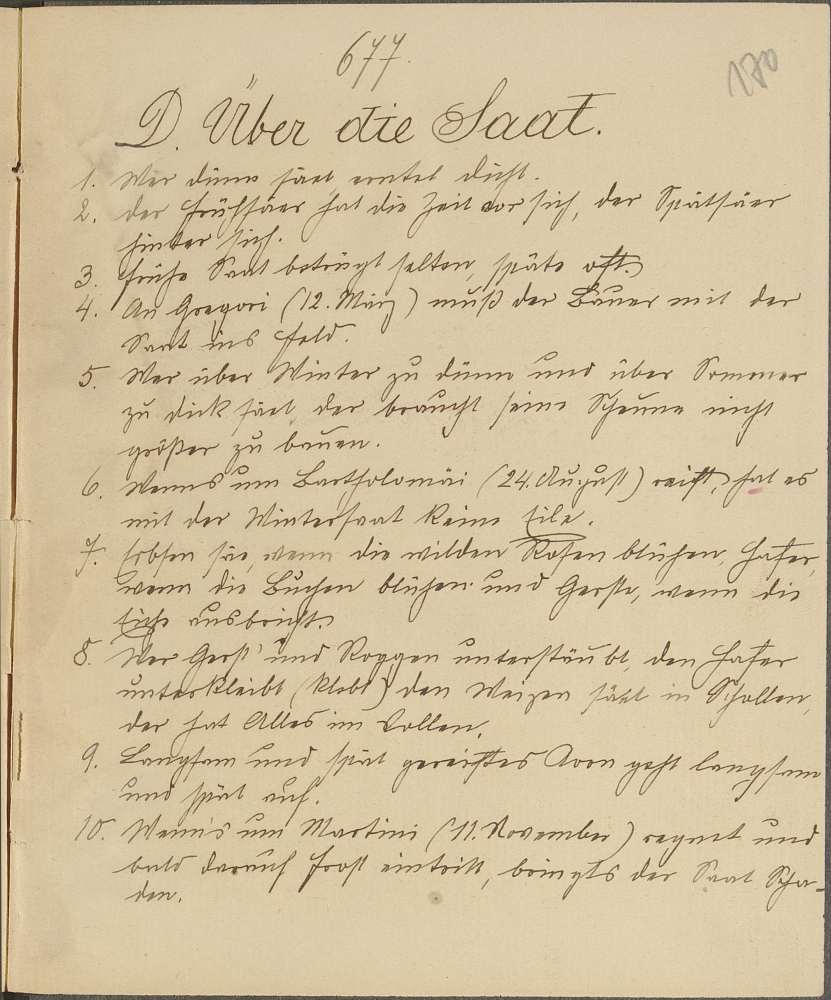 677.
170
D. Über die Saat.
1. Wer dünn säet erntet dicht.
2. der Frühsäer hat die Zeit vor sich, der Spätsäer
hinter sich.
3. frühe Saat betrügt selten, späte oft.
4. An Gregori (12. März) muß der Bauer mit der
Saat ins Feld.
5. Wer über Winter zu dünn und über Sommer
zu dick säet, der braucht seine Scheune nicht
größer zu bauen.
6. Wenns um Bartholomäi (24. August) reift, hat es
mit der Wintersaat keine Eile.
7. Erbsen säe, wenn die wilden Rosen blühen, Hafer,
wenn die Buchen blühen und Gerste, wenn die
Eiche ausbricht.
8. Wer Gerst' und Roggen unterstäubt, den Hafer
unterkleibt (klebt) den Weizen säet in Schollen,
der hat Alles im Vollen.
9. Langsam und spät gereiftes Korn geht langsam
und spät auf.
10. Wenn's um Martini (11. November) regnet und
bald darauf Frost eintritt, bringts der Saat Scha-
den.